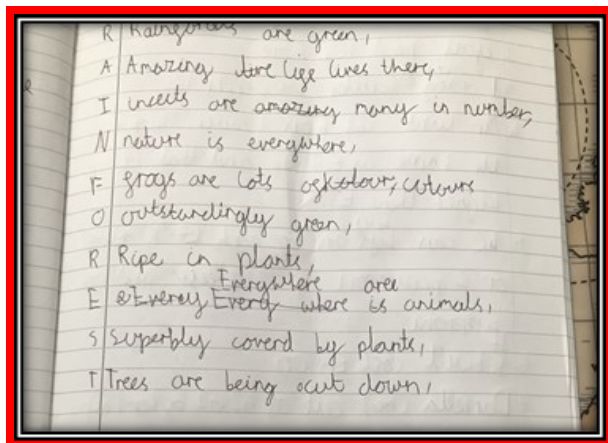 R Rainforests are green,
A Amazing life lives there,
I insects are many in number,
N nature is everywhere,
F frogs are lots of colours
O outstandingly green,
R Ripe in plants,
Everywhere are
E Every where is animals,
S Superbly coverd by plants,
T Trees are being cut down,